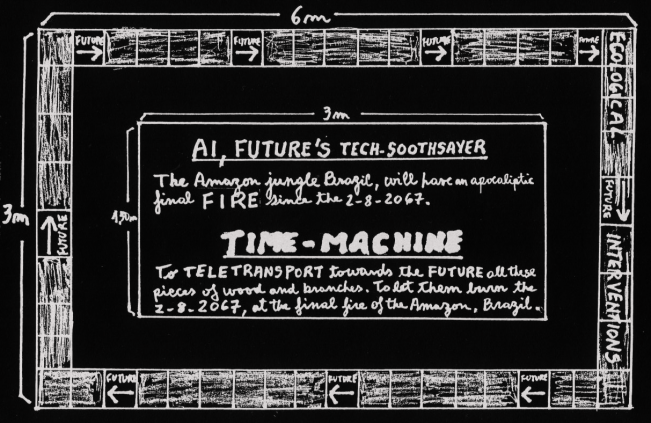 6m
FUTURE
FUTURE
FUTURE
FUTURE
ECOLOGICAL
3m
AI, FUTURE'S TECH-SOOTHSAYER
The Amazon jungle Brazil, will have an apocaliptic
final FIRE since the 2-8-2067.
1,50m
3m
FUTURE
FUTURE
TIME-MACHINE
To TELETRANSPORT towards the FUTURE all these
pieces of wood and branches. To let them burn the
2-8-2067, at the final fire of the Amazon, Brazil.
INTERVENTIONS
FUTURE
FUTURE
FUTURE